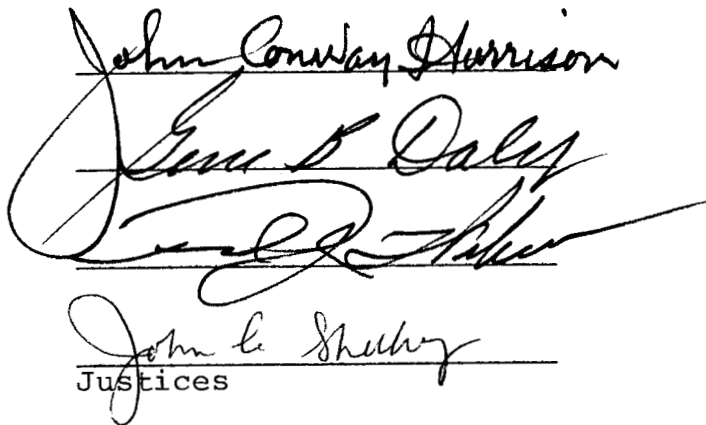 John Conway Harrison
Gene B Daly
John C Sheehy
Justices